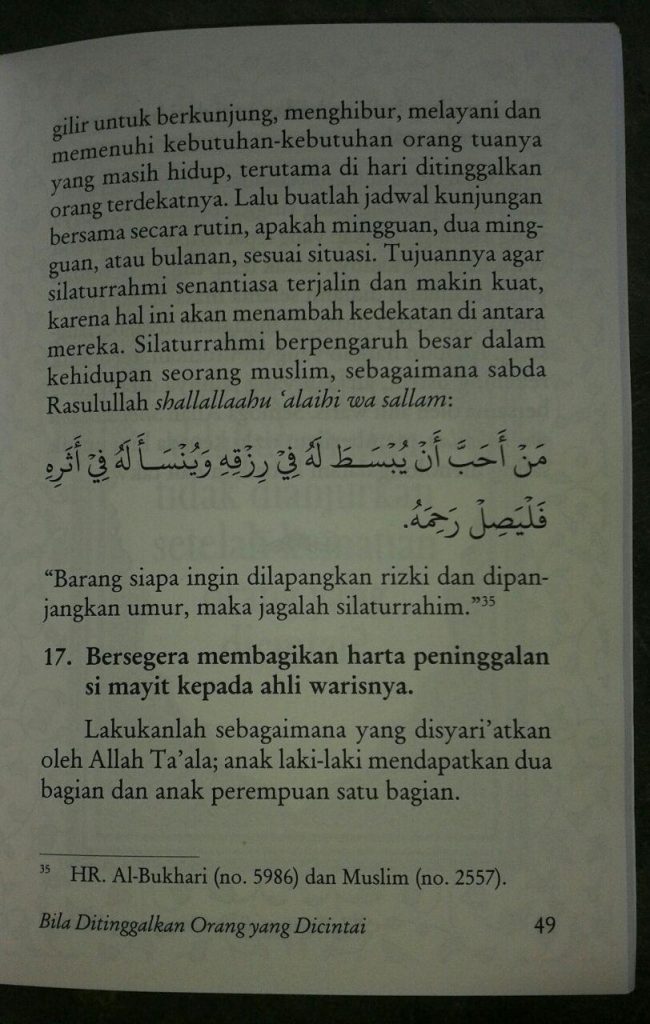 gilir untuk berkunjung, menghibur, melayani dan
memenuhi kebutuhan-kebutuhan orang tuanya
yang masih hidup, terutama di hari ditinggalkan
orang terdekatnya. Lalu buatlah jadwal kunjungan
bersama secara rutin, apakah mingguan, dua ming-
guan, atau bulanan, sesuai situasi. Tujuannya agar
silaturrahmi senantiasa terjalin dan makin kuat,
karena hal ini akan menambah kedekatan di antara
mereka. Silaturrahmi berpengaruh besar dalam
kehidupan seorang muslim, sebagaimana sabda
Rasulullah shallallaahu ‘alaihi wa sallam:
مَنْ أَحَبَّ أَنْ يُبْسَطَ لَهُ فِيْ رِزْقِهِ وَيُنْسَأَ لَهُ فِيْ أَثَرِهِ
فَلْيَصِلْ رَحِمَهُ.
“Barang siapa ingin dilapangkan rizki dan dipan-
jangkan umur, maka jagalah silaturrahim.”35
17. Bersegera membagikan harta peninggalan
si mayit kepada ahli warisnya.
Lakukanlah sebagaimana yang disyari’atkan
oleh Allah Ta’ala; anak laki-laki mendapatkan dua
bagian dan anak perempuan satu bagian.
35 HR. Al-Bukhari (no. 5986) dan Muslim (no. 2557).
Bila Ditinggalkan Orang yang Dicintai 49